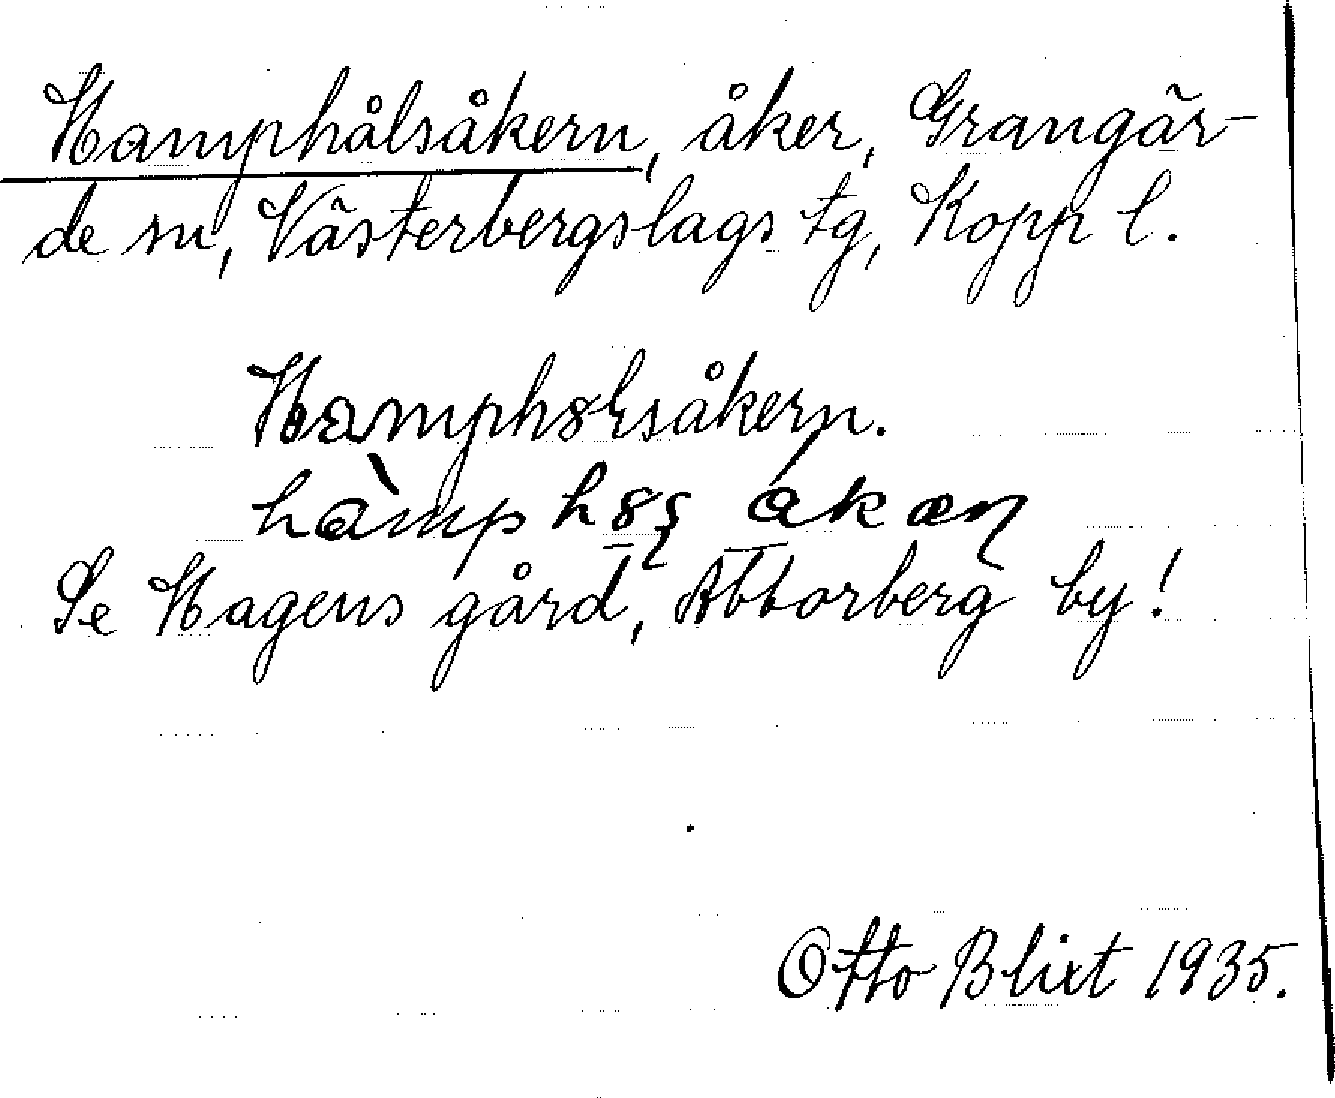 Hamphålsåkern, åker, Grangär-
de sn, Västerbergslags tg, Kopp l.
Hamphȣlsåkern.
Se Hagens gård, Abborberg by!
Otto Blixt 1935.